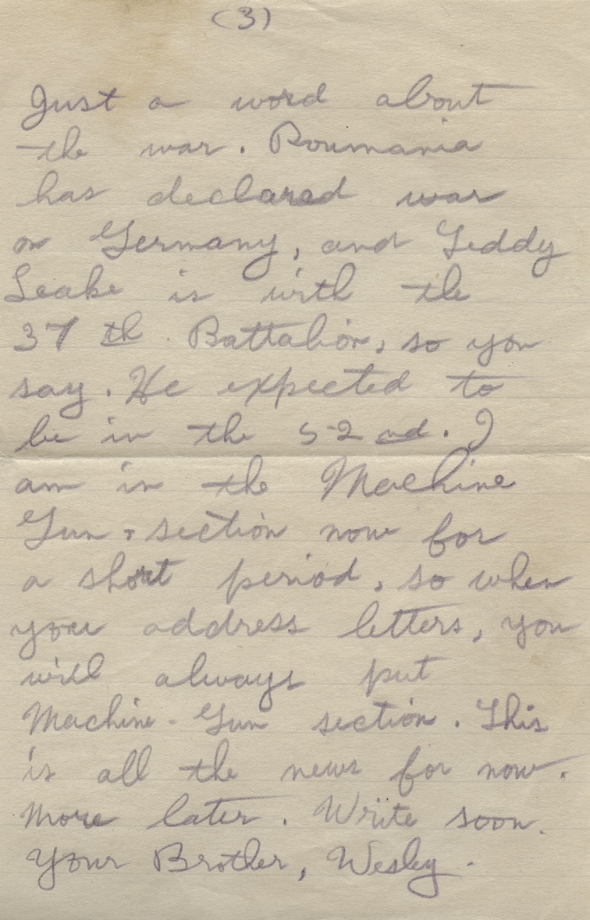 (3)
Just a word about
the war. Roumania
has declared war
on Germany, and Teddy
Leake is with the
37th. Battalion, so you
say. He expected to
be in the 52nd. I
am in the Machine
Gun-section now for
a short period, so when
you address letters, you
will always put
Machine-Gun section. This
is all the news for now.
More later. Write soon.
Your Brother, Wesley.